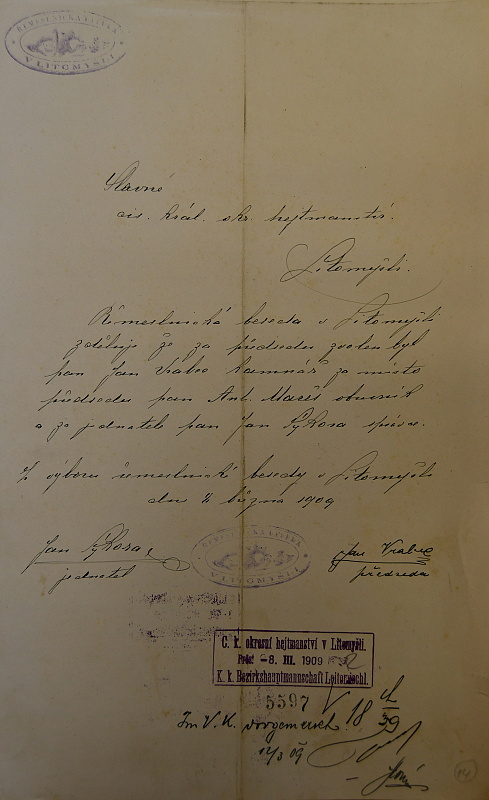 ŘEMESLNICKÁ BESEDA
V LITOMYŠLI
Slavné
cís. král. okr. hejtmanství.
Litomyšli.
Řemeslnická beseda v Litomyšli
zděluje že za předsedu zvolen byl
pan Jan Vrabec kamnář za místo
předsedu pan Ant. Mareš obuvník
a za jednatele pan Jan Sýkora správc.
Z výboru řemeslnické besedy v Litomyšli
dne března 1909
Jan Sýkora
jednatel
ŘEMESLNICKÁ BESEDA
V LITOMYŠLI
Jan Vrabec
předseda
C. k. okresní hejtmanství v Litomyšli.
Präs. -8. III. 1909
K. k. Bezirkshauptmannschaft Leitomischl.
5597
18 39
Im V. K. vorgemerkt
12/3 09
14